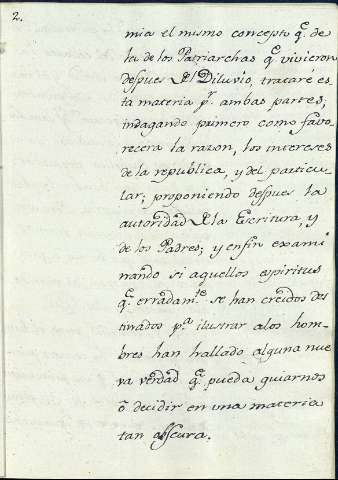 2.
mia el mismo concepto q.e de
la de los Patriarchas q.e vivieron
despues del Diluvio, trataré es-
ta materia p.r ambas partes,
indagando primero como favo-
recera la razon, los intereses
de la republica, y del particu-
lar; proponiendo despues la
autoridad de la Escritura, y
de los Padres; y enfin exami
nando si aquellos espiritus
q.e erradam.te se han creidos des
tinados p.a ilustrar alos hom-
bres han hallado alguna nue
va verdad q.e pueda guiarnos
ô decidir en una materia
tan obscura.